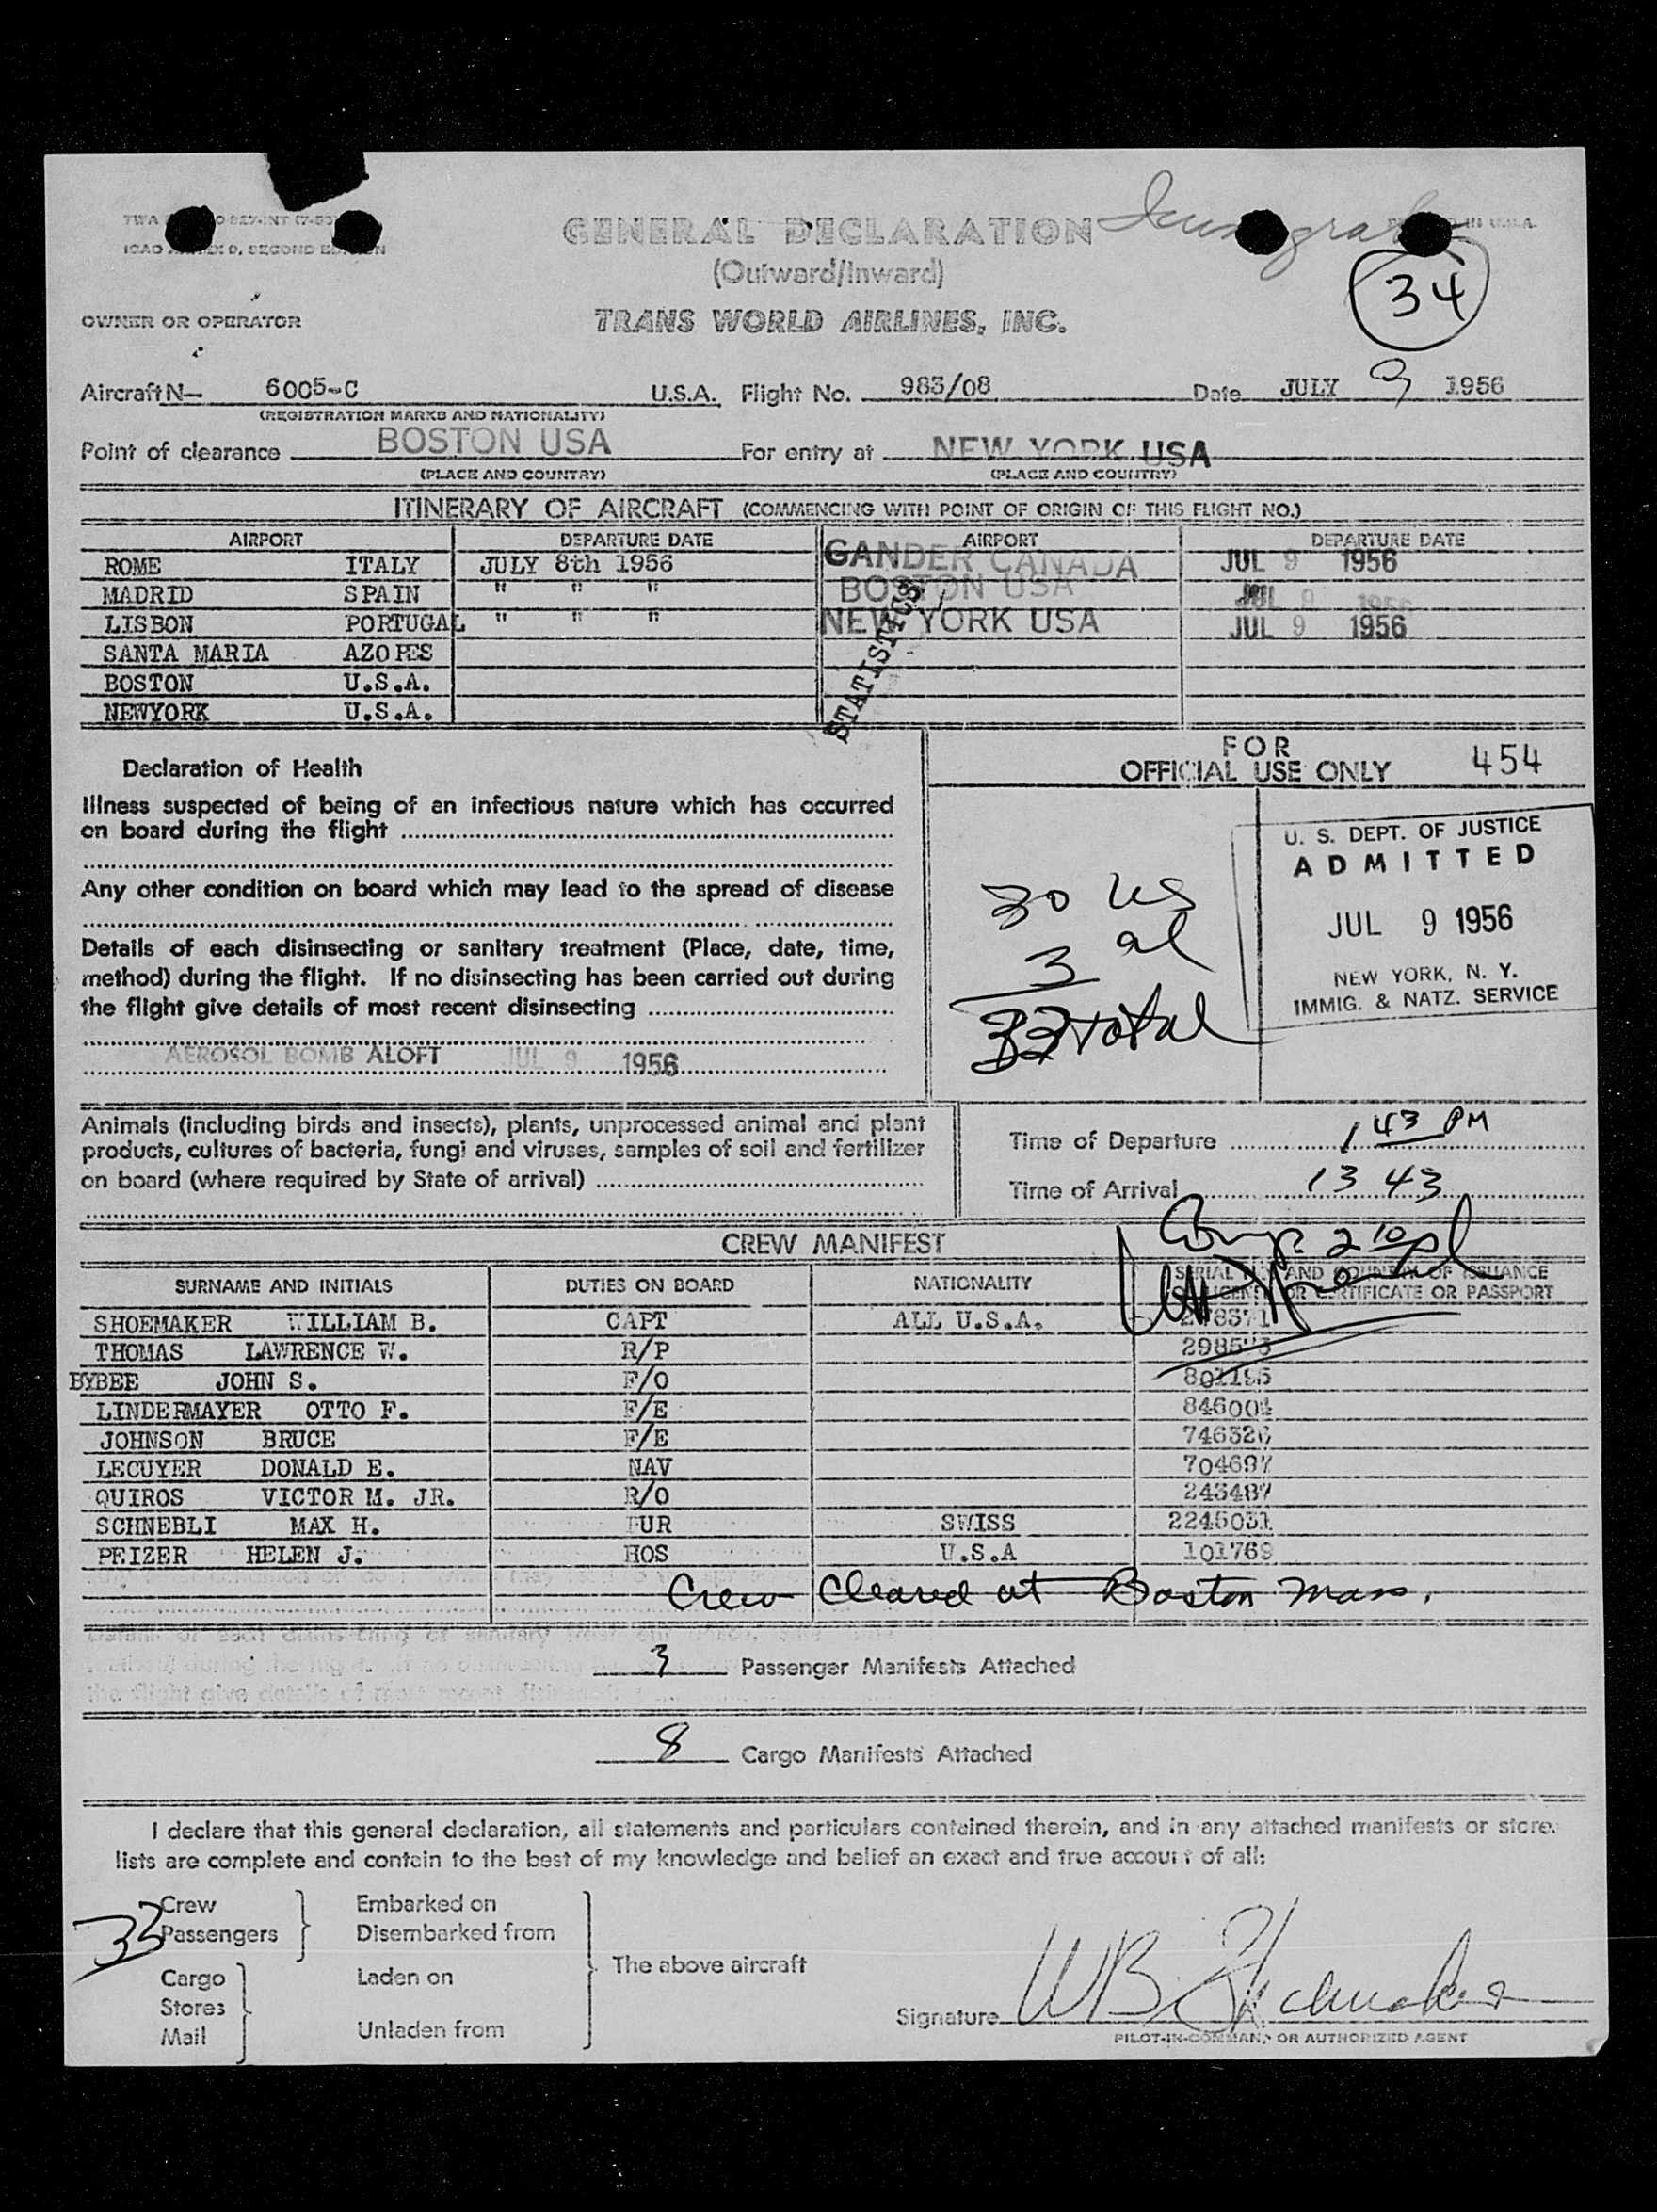 GENERAL DECLARATION
(Outward/Inward)
34
OWNER OR OPERATOR TRANS WORLD AIRLINES, INC.
Aircraft N— 6005-C U.S.A. Flight No. 983/08 Date JULY 9 1956
(REGISTRATION MARKS AND NATIONALITY)
Point of clearance BOSTON USA For entry at NEW YORK USA
(PLACE AND COUNTRY) (PLACE AND COUNTRY)
ITINERARY OF AIRCRAFT (COMMENCING WITH POINT OF ORIGIN OF THIS FLIGHT NO.)
AIRPORT DEPARTURE DATE AIRPORT DEPARTURE DATE
ROME ITALY JULY 8th 1956 GANDER CANADA JUL 9 1956
MADRID SPAIN " " " BOSTON USA JUL 9 1956
LISBON PORTUGAL " " " NEW YORK USA JUL 9 1956
SANTA MARIA AZORES
BOSTON U.S.A.
NEWYORK U.S.A.
STATISTICS
Declaration of Health
Illness suspected of being of an infectious nature which has occurred
on board during the flight
Any other condition on board which may lead to the spread of disease
Details of each disinsecting or sanitary treatment (Place, date, time,
method) during the flight. If no disinsecting has been carried out during
the flight give details of most recent disinsecting
AEROSOL BOMB ALOFT JUL 9 1956
FOR
OFFICIAL USE ONLY 454
30 US
3 al
33 total
U. S. DEPT. OF JUSTICE
ADMITTED
JUL 9 1956
NEW YORK, N. Y.
IMMIG. & NATZ. SERVICE
Animals (including birds and insects), plants, unprocessed animal and plant
products, cultures of bacteria, fungi and viruses, samples of soil and fertilizer
on board (where required by State of arrival)
Time of Departure 1 43 PM
Time of Arrival 13 43
CREW MANIFEST
SURNAME AND INITIALS DUTIES ON BOARD NATIONALITY SERIAL AND COUNTRY OF ISSUANCE
OR CERTIFICATE OR PASSPORT
SHOEMAKER WILLIAM B. CAPT ALL U.S.A.
THOMAS LAWRENCE W. R/P
BYBEE JOHN S. F/O
LINDERMAYER OTTO F. F/E 846004
JOHNSON BRUCE F/E 746326
LECUYER DONALD E. NAV 704697
QUIROS VICTOR M. JR. R/O 243487
SCHNEBLI MAX H. PUR SWISS 2245031
PEIZER HELEN J. HOS U.S.A 101769
Crew Cleared at Boston Mass.
3 Passenger Manifests Attached
8 Cargo Manifests Attached
I declare that this general declaration, all statements and particulars contained therein, and in any attached manifests or store
lists are complete and contain to the best of my knowledge and belief an exact and true account of all:
33
Crew Embarked on
Passengers Disembarked from
The above aircraft
Cargo Laden on
Stores
Mail Unladen from
Signature WB Shoemaker
PILOT-IN-COMMAND OR AUTHORIZED AGENT